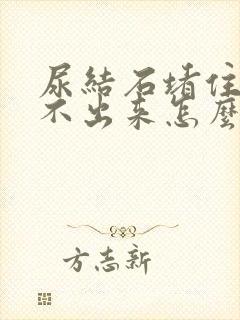 尿結石堵住
不出来怎麼
方志新